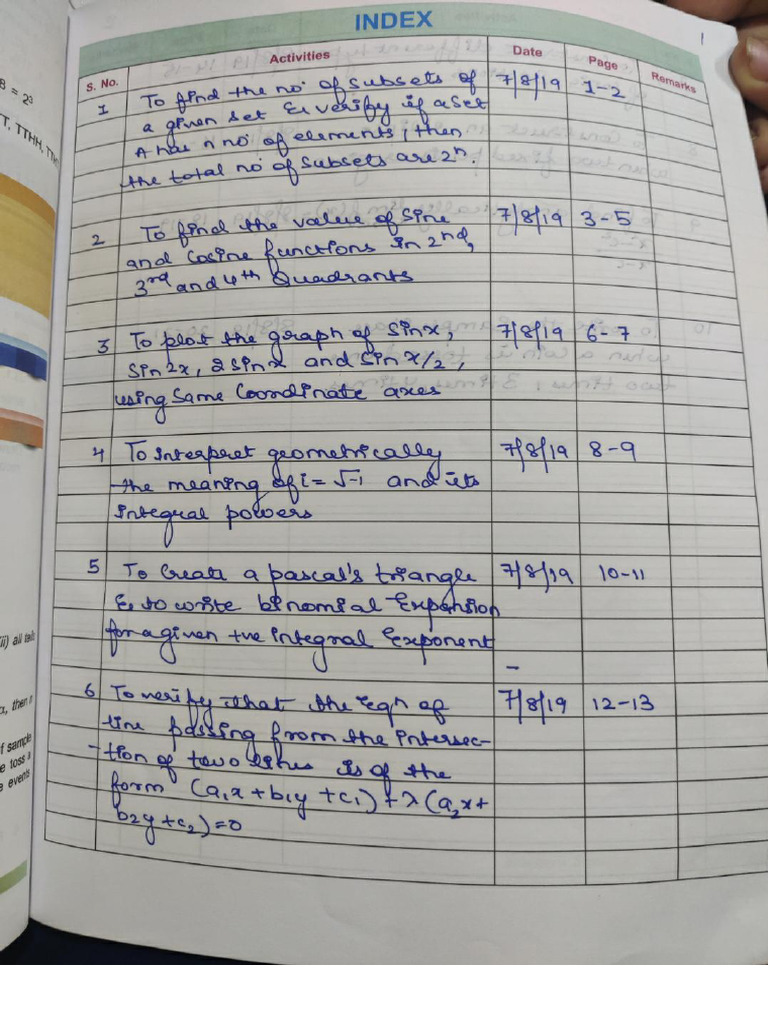 INDEX
S. No. Activities Date Page Remarks
1 To find the no. of subsets of 7/8/19 1-2
a given set & verify if a set
A has n no. of elements, then
the total no. of subsets are 2ⁿ.
2 To find the value of Sine 7/8/19 3-5
and Cosine functions in 2nd,
3rd and 4th Quadrants
3 To plot the graph of Sinx, 7/8/19 6-7
Sin 2x, 2 sin x and Sin x/2,
using Same Coordinate axes
4 To interpret geometrically 7/8/19 8-9
the meaning of i = √-1 and its
integral powers
5 To Create a pascal's triangle 7/8/19 10-11
& to write binomial Expansion
for a given +ve integral Exponent
6 To verify that the eqn of 7/8/19 12-13
line passing from the intersec-
-tion of two lines is of the
form (a₁x + b₁y + c₁) + λ(a₂x +
b₂y + c₂) = 0
8 = 2³
TT, TTHH,
ii) all
, then
f sample
e toss a
events